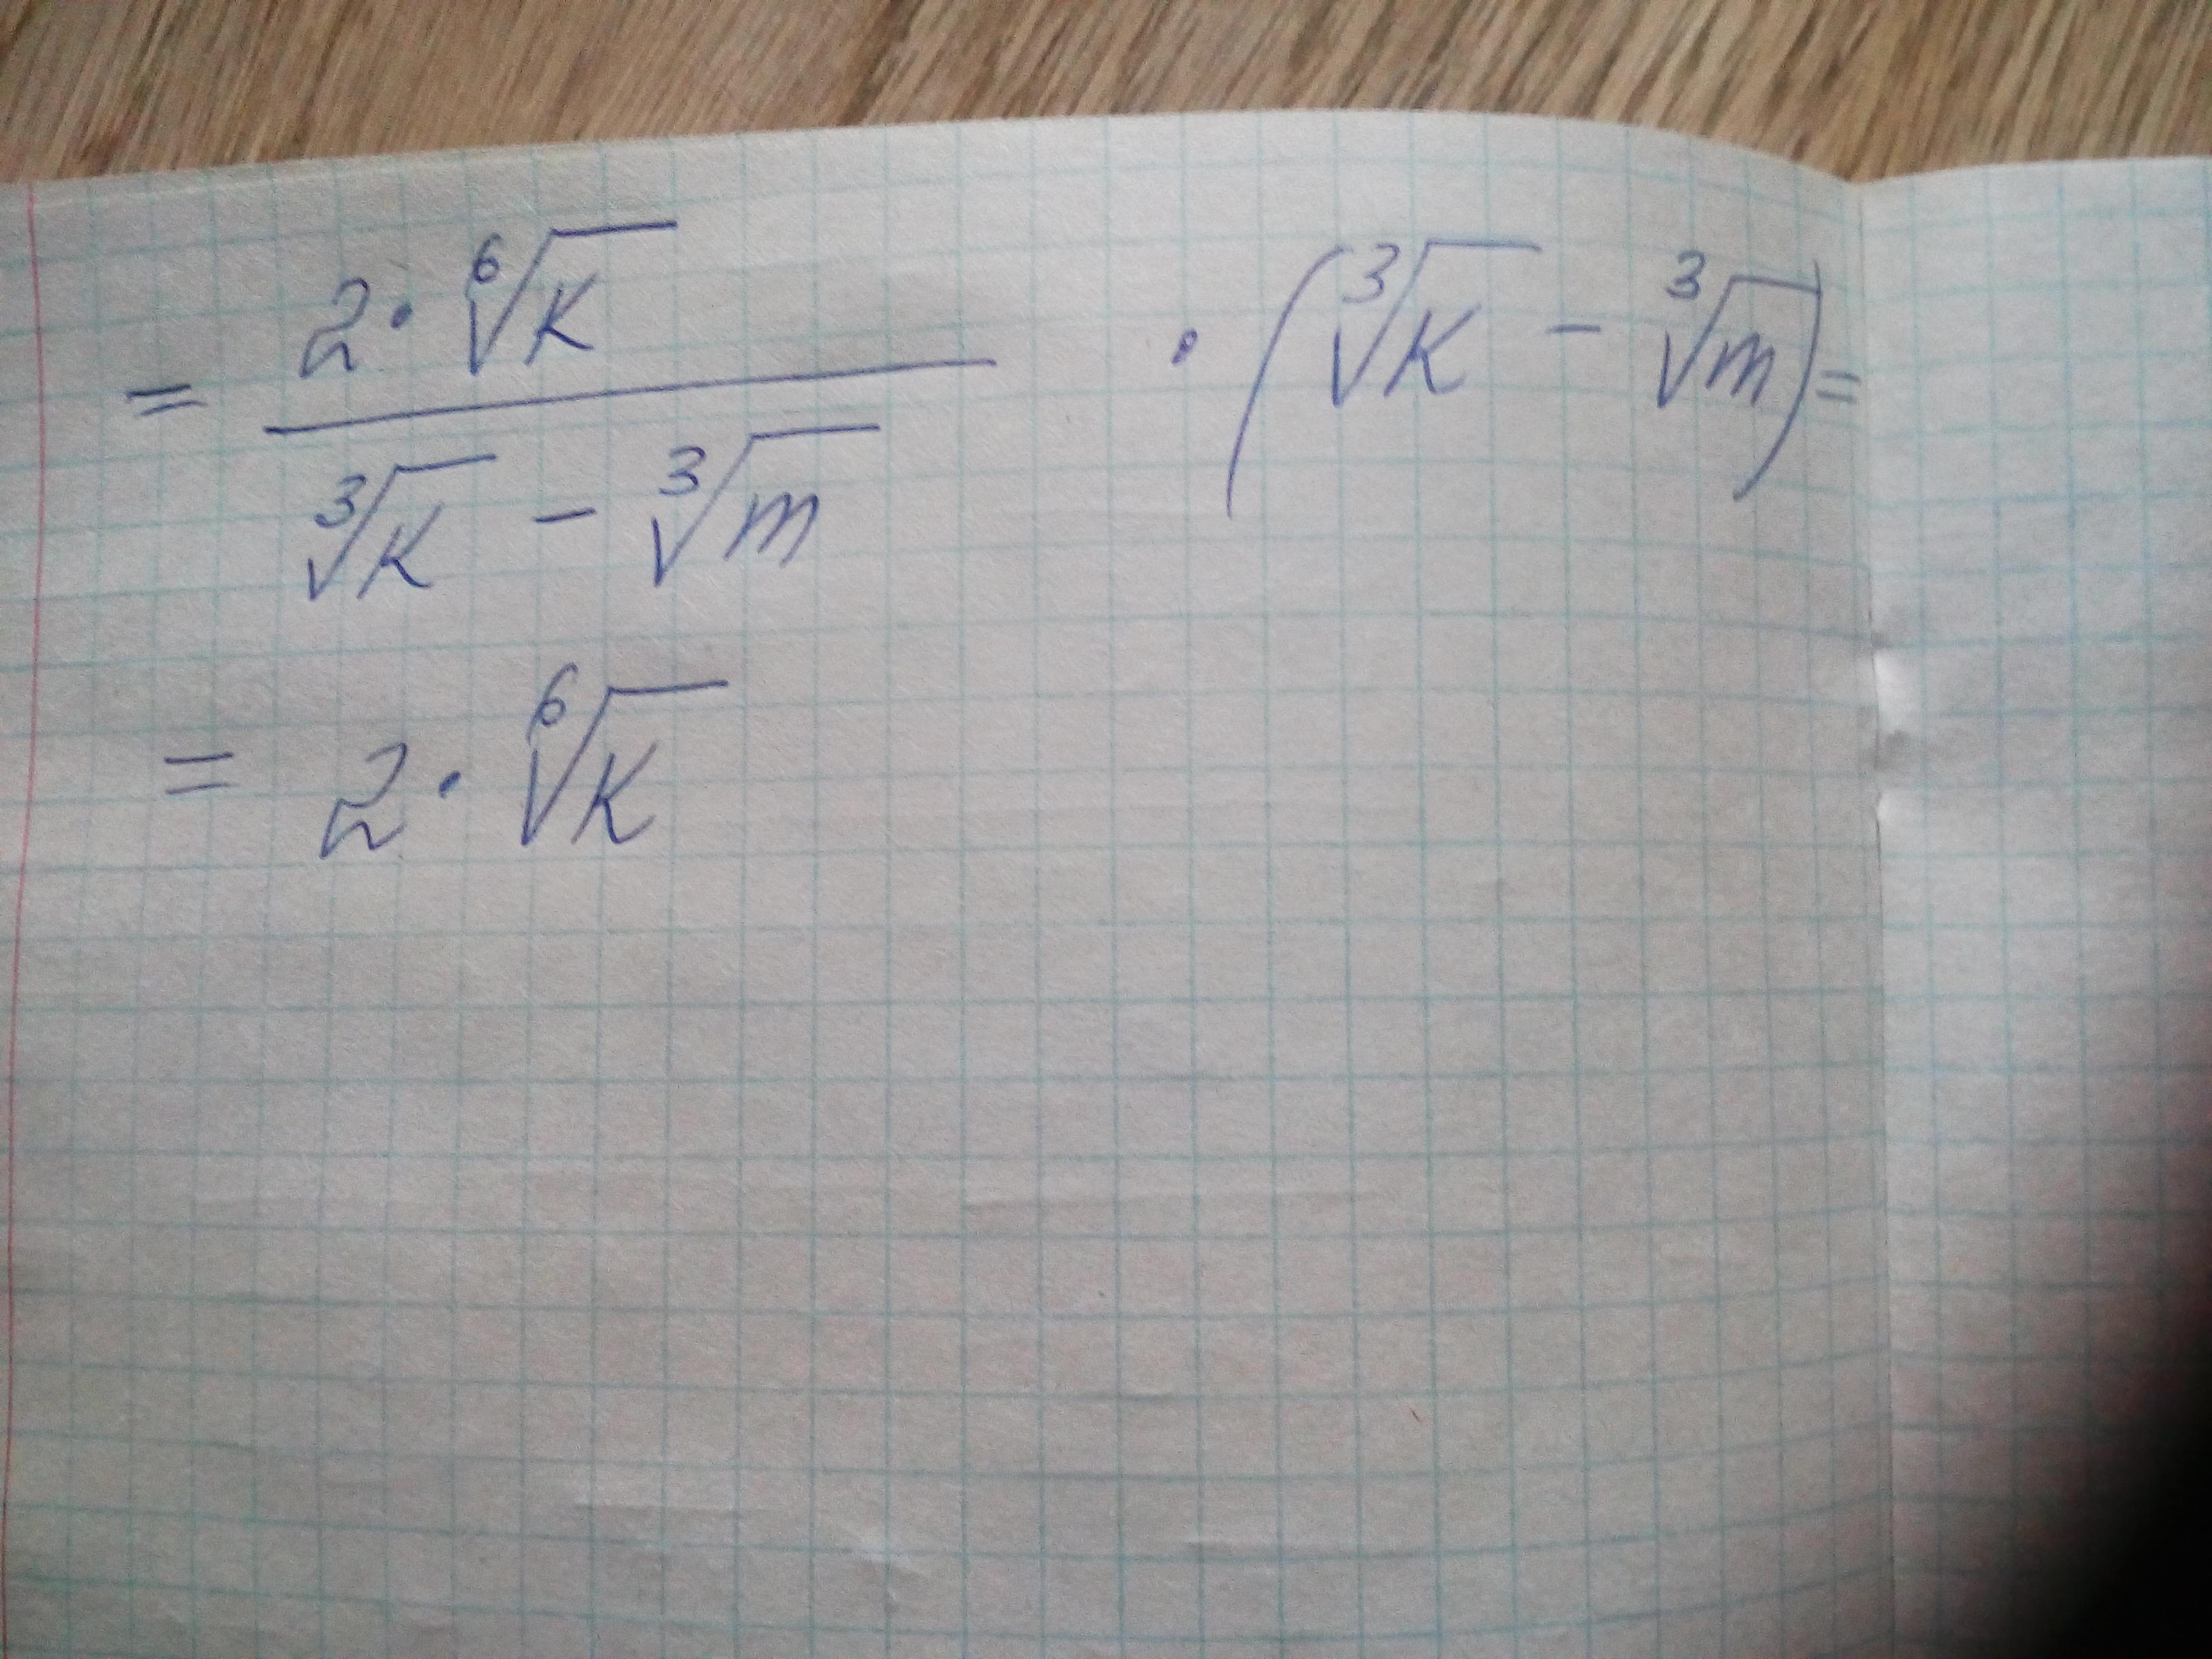 = \frac{2 \cdot \sqrt[6]{k}}{\sqrt[3]{k} - \sqrt[3]{m}} \cdot (\sqrt[3]{k} - \sqrt[3]{m}) =
= 2 \cdot \sqrt[6]{k}